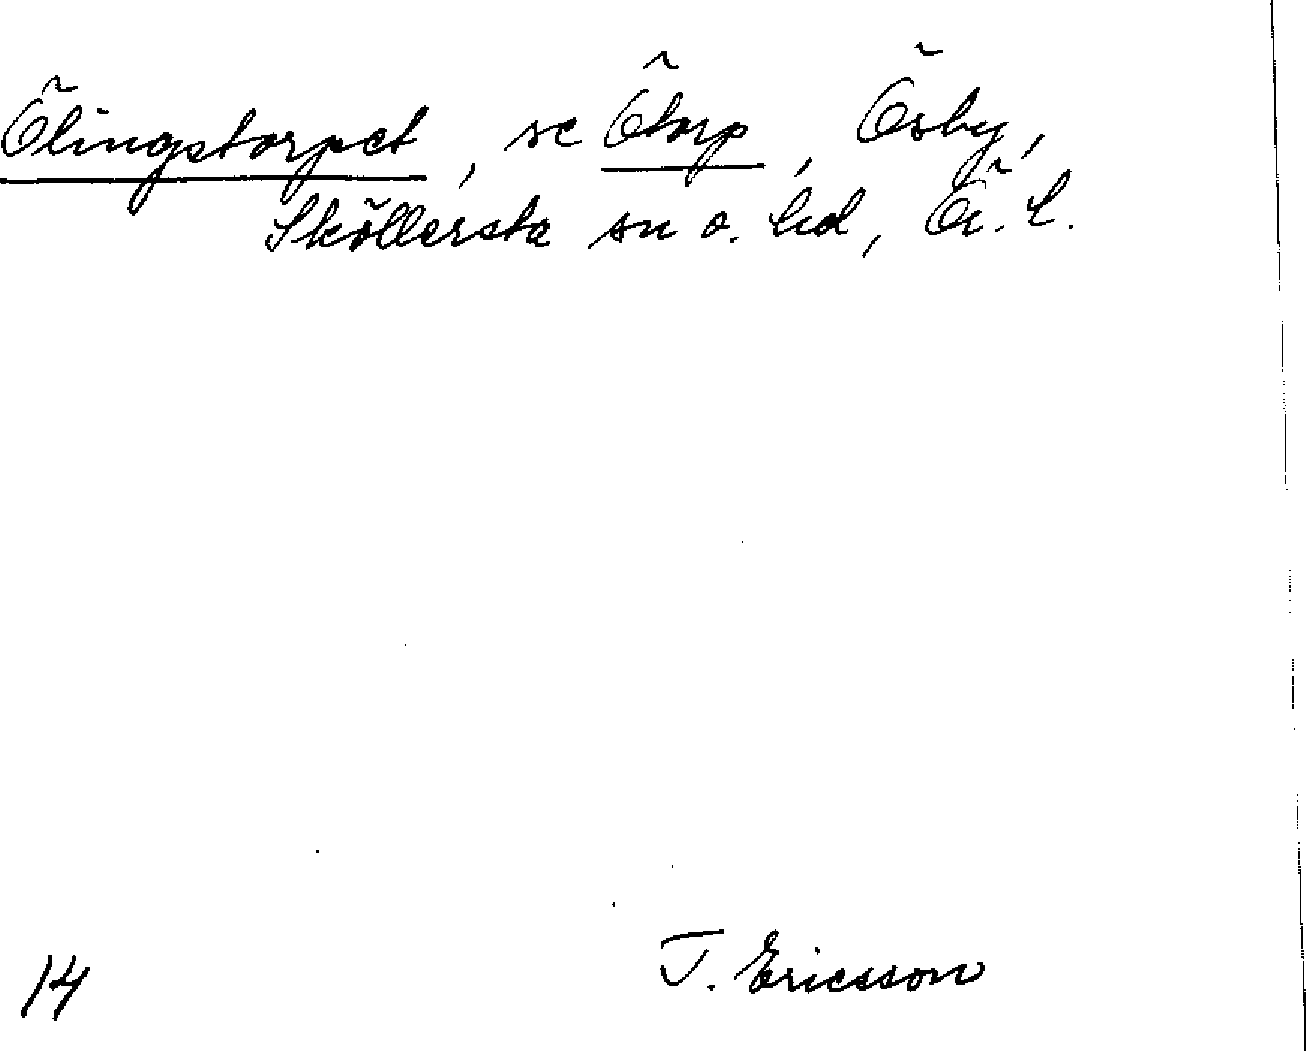 Ölingstorpet, se Ötorp, Ösby,
Sköllersta sn o. hd, Ö. l.
14
T. Ericsson